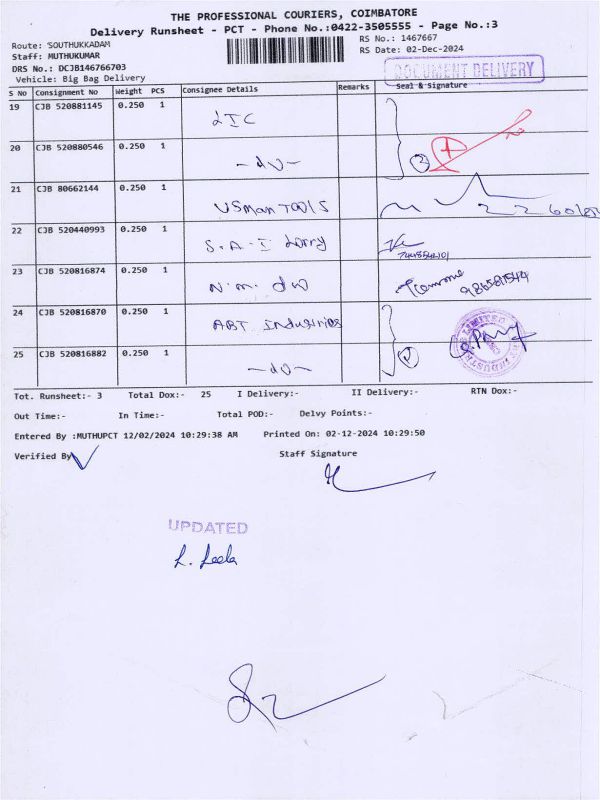 THE PROFESSIONAL COURIERS, COIMBATORE
Delivery Runsheet - PCT - Phone No.:0422-3505555 - Page No.:3
Route: 'SOUTHUKKADAM
RS No.: 1467667
Staff: MUTHUKUMAR
RS Date: 02-Dec-2024
DRS No.: DCJB146766703
DOCUMENT DELIVERY
Vehicle: Big Bag Delivery
S No Consignment No Weight PCS Consignee Details Remarks Seal & Signature
19 CJB 520881145 0.250 1 LIC
20 CJB 520880546 0.250 1 -do- 2
21 CJB 80662144 0.250 1 USman Tools
22 CJB 520440993 0.250 1 S.A.I Lorry
23 CJB 520816874 0.250 1 N.m.
24 CJB 520816870 0.250 1 ABT Industries
25 CJB 520816882 0.250 1 -do-
Tot. Runsheet:- 3 Total Dox:- 25 I Delivery:- II Delivery:- RTN Dox:-
Out Time:- In Time:- Total POD:- Delvy Points:-
Entered By :MUTHUPCT 12/02/2024 10:29:38 AM Printed On: 02-12-2024 10:29:50
Verified By
Staff Signature
UPDATED
L. Leela